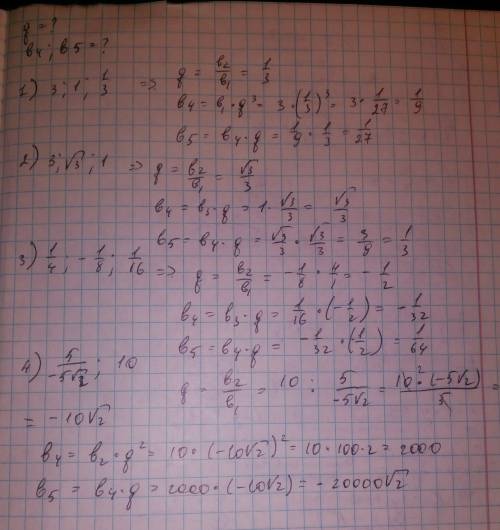 q = ?
в4; в5 = ?
1) 3; 1; 1/3 => q = в2/в1 = 1/3
в4 = в1 · q³ = 3 · (1/3)³ = 3 · 1/27 = 1/9
в5 = в4 · q = 1/9 · 1/3 = 1/27
2) 3; √3; 1 => q = в2/в1 = √3/3
в4 = в3 · q = 1 · √3/3 = √3/3
в5 = в4 · q = √3/3 · √3/3 = 3/9 = 1/3
3) 1/4; -1/8; 1/16 => q = в2/в1 = -1/8 · 4/1 = -1/2
в4 = в3 · q = 1/16 · (-1/2) = -1/32
в5 = в4 · q = -1/32 · (1/2) = 1/64
4) 5/-5√2; 10
q = в2/в1 = 10 : 5/-5√2 = 10² · (-5√2)/5 =
= -10√2
в4 = в2 · q² = 10 · (-10√2)² = 10 · 100 · 2 = 2000
в5 = в4 · q = 2000 · (-10√2) = -20000√2